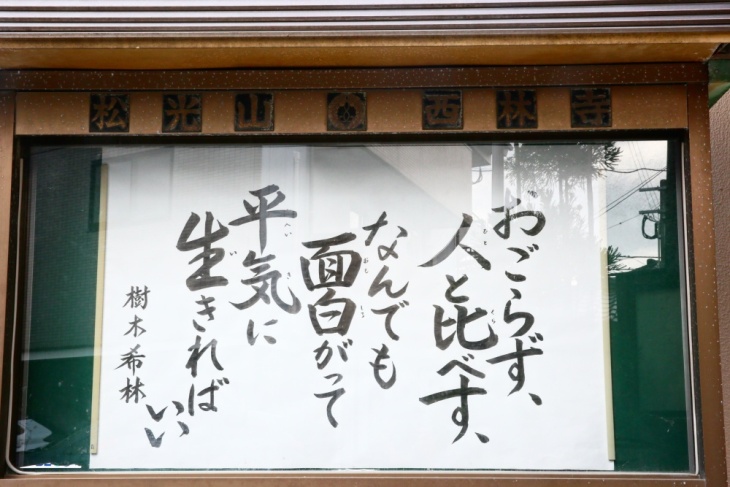 松光山 西林寺
おごらず、
人と比べず、
なんでも
面白がって
平気に
生きればいい
樹木希林